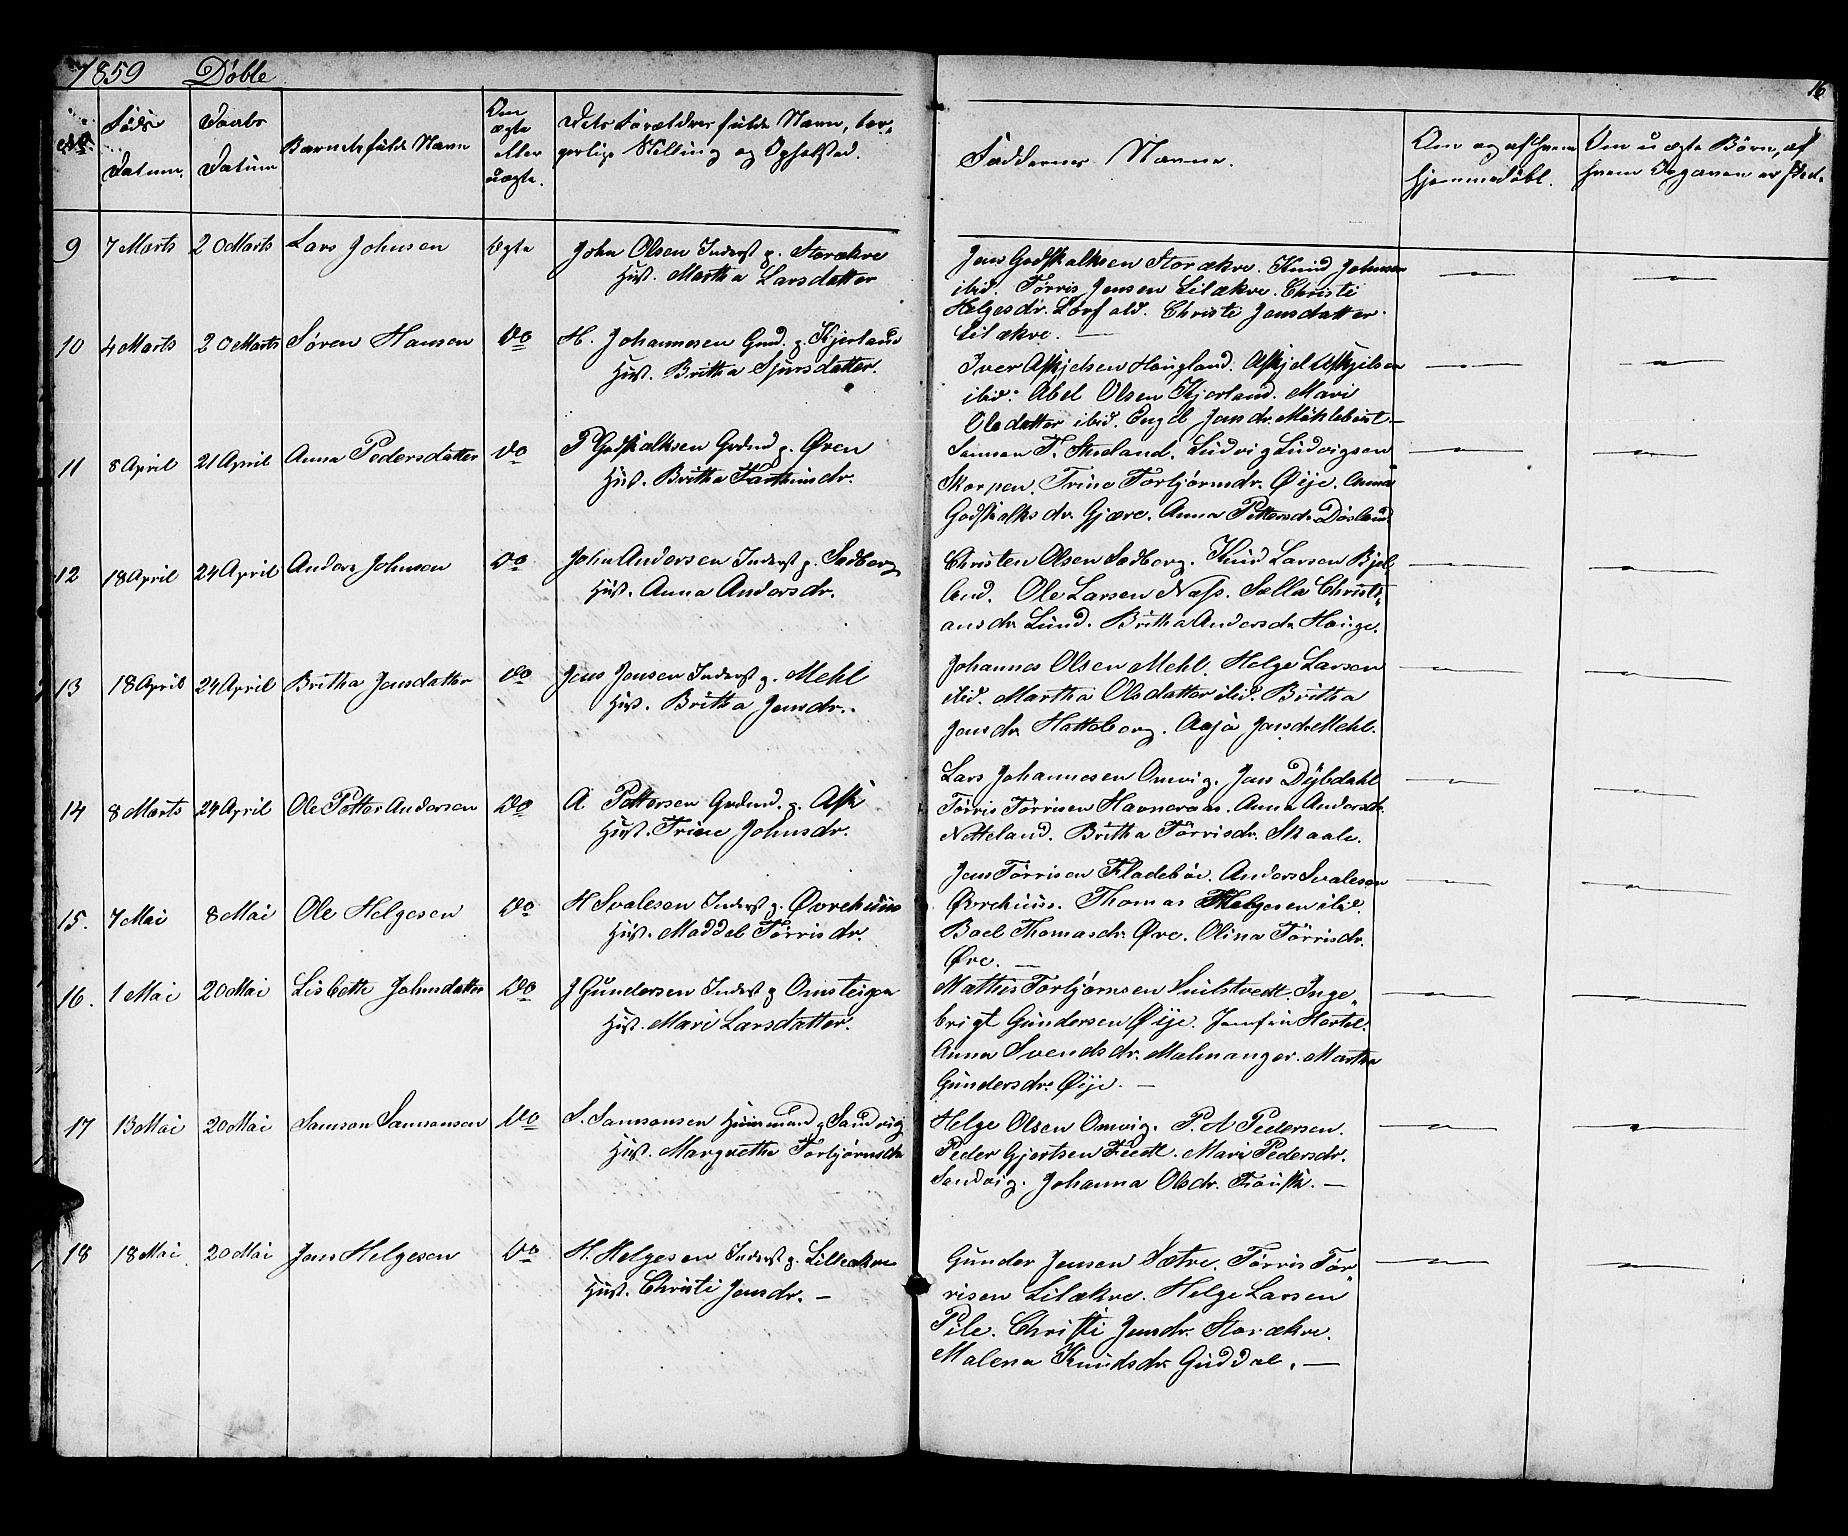 1859 Døbte
16
No.
Føds Datum.
Daabs Datum
Barnets fulde Navn
Om ægte eller uægte.
Dets Forældres fulde Navn, bor-
gerlige Stilling og Opholsted.
Faddernes Navne.
Om og af hvem
hjemmedøbt.
Om uægte Børn, af
hvem Opgaven er sked.
9 7 Marts 20 Marts Lars Johnsen Ægte John Olsen Inderst p. Storækre
Hust. Martha Larsdatter
Jens Godskalksen Storækre. Knud Johnsen
ibid. Tørris Jensen Lilækre. Christi
Helgesdr. Lørfald. Christi Jensdatter
Lilækre. —
10 4 Marts 20 Marts Søren Hansen Do H. Johannesen Grd. p. Kjerland
Hust. Britha Sjursdatter.
Iver Askjelsen Haugland. Askjel Askjelsen
ibid. Abel Olsen Kjerland. Mari
Olsdatter ibid. Engel Jensdr. Mehlebust. —
11 8 April 21 April Anna Pedersdatter Do P Godskalksen Grdmd p. Øren
Hust. Britha
Samson T. Ludvig Ludvigsen
Skorpen. Trine Torbjørnsdr. Øije. Anna
Godskalksdr. Gjære. Anna Pettersdr. Døsland
12 18 April 24 April Anders Johnson Do John Andersen Inderst p. Sædberg
Hust. Anna Andersdr.
Christen Olsen Sædberg. Knud Larsen Bjel
land. Ole Larsen Næss. Sælla Christi-
ansdr. Lund. Britha Andersdr. Hauge.
13 18 April 24 April Britha Jensdatter Do Jens Jensen Inderst p. Mehl
Hust. Britha Jensdr.
Johannes Olsen Mehl. Helge Larsen
ibid. Martha Olsdatter ibid. Britha
Jensdr. Hatteberg. Aasa Jensdr. Mehl.
14 8 Marts 24 April Ole Petter Andersen Do A. Pettersen Grdmd. p. Ask
Hust. Trine Johnsdr.
Lars Johannesen Omvig. Jens Dybdahl
Tørris Tørrisen Havneraas. Anna Andersdr.
Netteland. Britha Tørrisdr. Skaale.
15. 7 Mai 8 Mai Ole Helgesen Do H Svalesen Inderst p. Øvrehuus
Hust. Maddel Tørrisdr.
Jens Tørrisen Fladebøe. Anders Svalesen
Øvrehuus. Thomas Helgesen ibid.
Boel Thomasdr. Øre. Olina Tørrisdr.
Øre. —
16. 1 Mai 20 Mai Lisbette Johnsdatter Do J Gundersen Inderst p Omsteigen
Hust. Mari Larsdatter.
Mathis Torbjørnsen Snilstvedt. Inge-
brigt Gundersen Øije. Hertel.
Anna Svendsdr. Malmanger. Martha
Gundersdr. Øije. —
17 13 Mai 20 Mai Samson Samsonsen Do S. Samsonsen Huusmand p Sandvig
Hust. Margrethe Torbjørnsdr
Helge Olsen Omvig. P. A Pedersen.
Peder Gjertsen Tvedt. Mari Pedersdr.
Sandvig. Johanna Olsdr. Trauste. —
18 18 Mai 20 Mai Jens Helgesen Do H. Helgesen Inderst p. Lilleækre
Hust. Christi Jensdr. —
Gunder Jensen Sætre. Tørris Tør-
risen Lilækre. Helge Larsen
Pile. Christi Jensdr. Storækre.
Malena Knudsdr Guddal. —